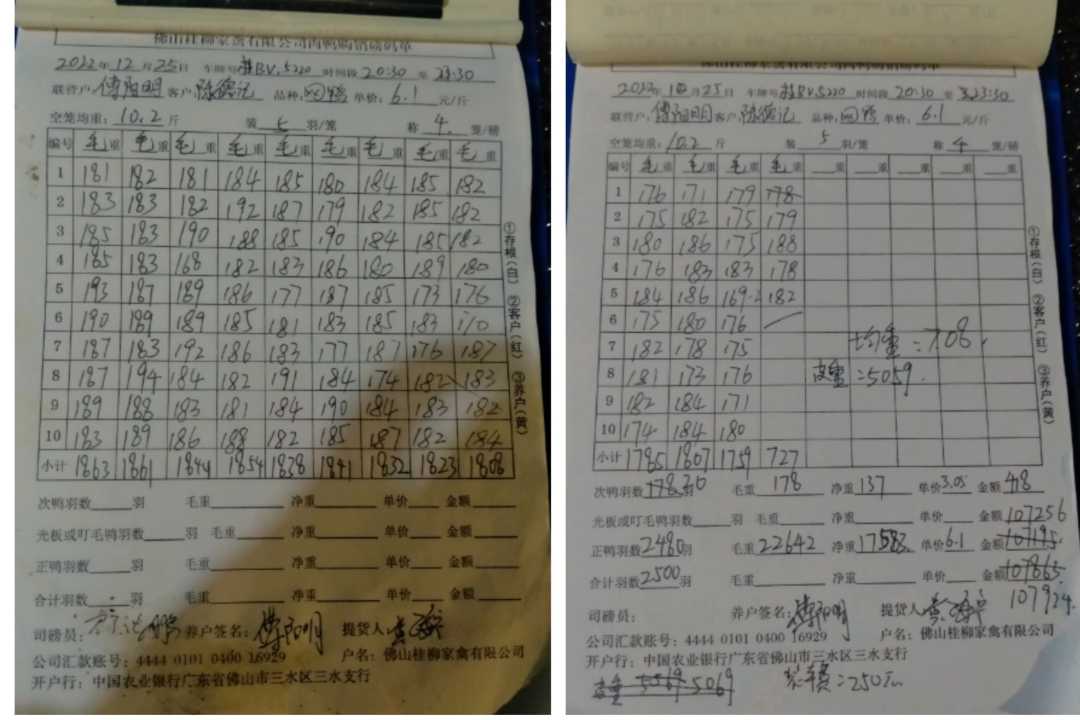 佛山桂柳家禽有限公司肉鸭购销磅码单
2022年12月25日 车牌号桂BV.5220 时间段20:30至23:30
联营户:傅阳明 客户:陈德记 品种: 单价:6.1元/斤
空笼均重:10.2斤 装5羽/笼 称4.笼/磅
编号 毛重 毛重 毛重 毛重 毛重 毛重 毛重 毛重 毛重
1 181 182 181 184 185 180 184 185 182
2 183 183 182 192 187 179 182 185 182
3 185 183 190 188 185 190 184 185 182
4 185 183 168 182 183 186 180 189 180
5 193 187 189 186 177 187 185 173 176
6 190 189 189 185 181 183 185 183 170
7 187 183 192 186 183 177 187 176 187
8 187 194 184 182 191 184 174 182 183
9 189 188 183 181 184 190 184 183 182
10 183 189 186 188 182 185 187 182 184
小计 1863 1861 1844 1854 1838 1841 1832 1823 1808
次鸭羽数 羽 毛重 净重 单价 金额
光板或叮毛鸭羽数 羽 毛重 净重 单价 金额
正鸭羽数 羽 毛重 净重 单价 金额
合计羽数 羽 毛重 净重 单价 金额
司磅员: 养户签名:傅阳明 提货人
公司汇款账号:4444 0101 0400 16929 户名:佛山桂柳家禽有限公司
开户行:中国农业银行广东省佛山市三水区三水支行
①存根(白) ②客户(红) ③养户(黄)
佛山桂柳家禽有限公司肉鸭购销磅码单
2022年12月25日 车牌号桂BV5220 时间段20:30至23:30
联营户:傅阳明 客户:陈德记 品种: 单价:6.1元/斤
空笼均重:10.2斤 装5羽/笼 称4笼/磅
编号 毛重 毛重 毛重 毛重 重 重 重 重 重
1 176 171 179 178
2 175 182 175 179
3 180 186 175 188
4 176 183 183 178
5 184 186 169.2 182
6 175 180 176
7 182 178 175 均重=7.08
8 181 173 176 皮重=5059.
9 182 184 171
10 174 184 180
小计 1785 1807 1759 727
次鸭羽数20羽 毛重178 净重137 单价3.05 金额418
光板或叮毛鸭羽数 羽 毛重 净重 单价 金额107256
正鸭羽数2480羽 毛重22642 净重17583 单价6.1 金额107195
合计羽数2500羽 毛重 净重 单价 金额107865
司磅员: 养户签名:傅阳明 提货人
公司汇款账号:4444 0101 0400 16929 户名:佛山桂柳家禽有限公司
开户行:中国农业银行广东省佛山市三水区三水支行
5069
=250元
①存根(白) ②客户(红) ③养户(黄)